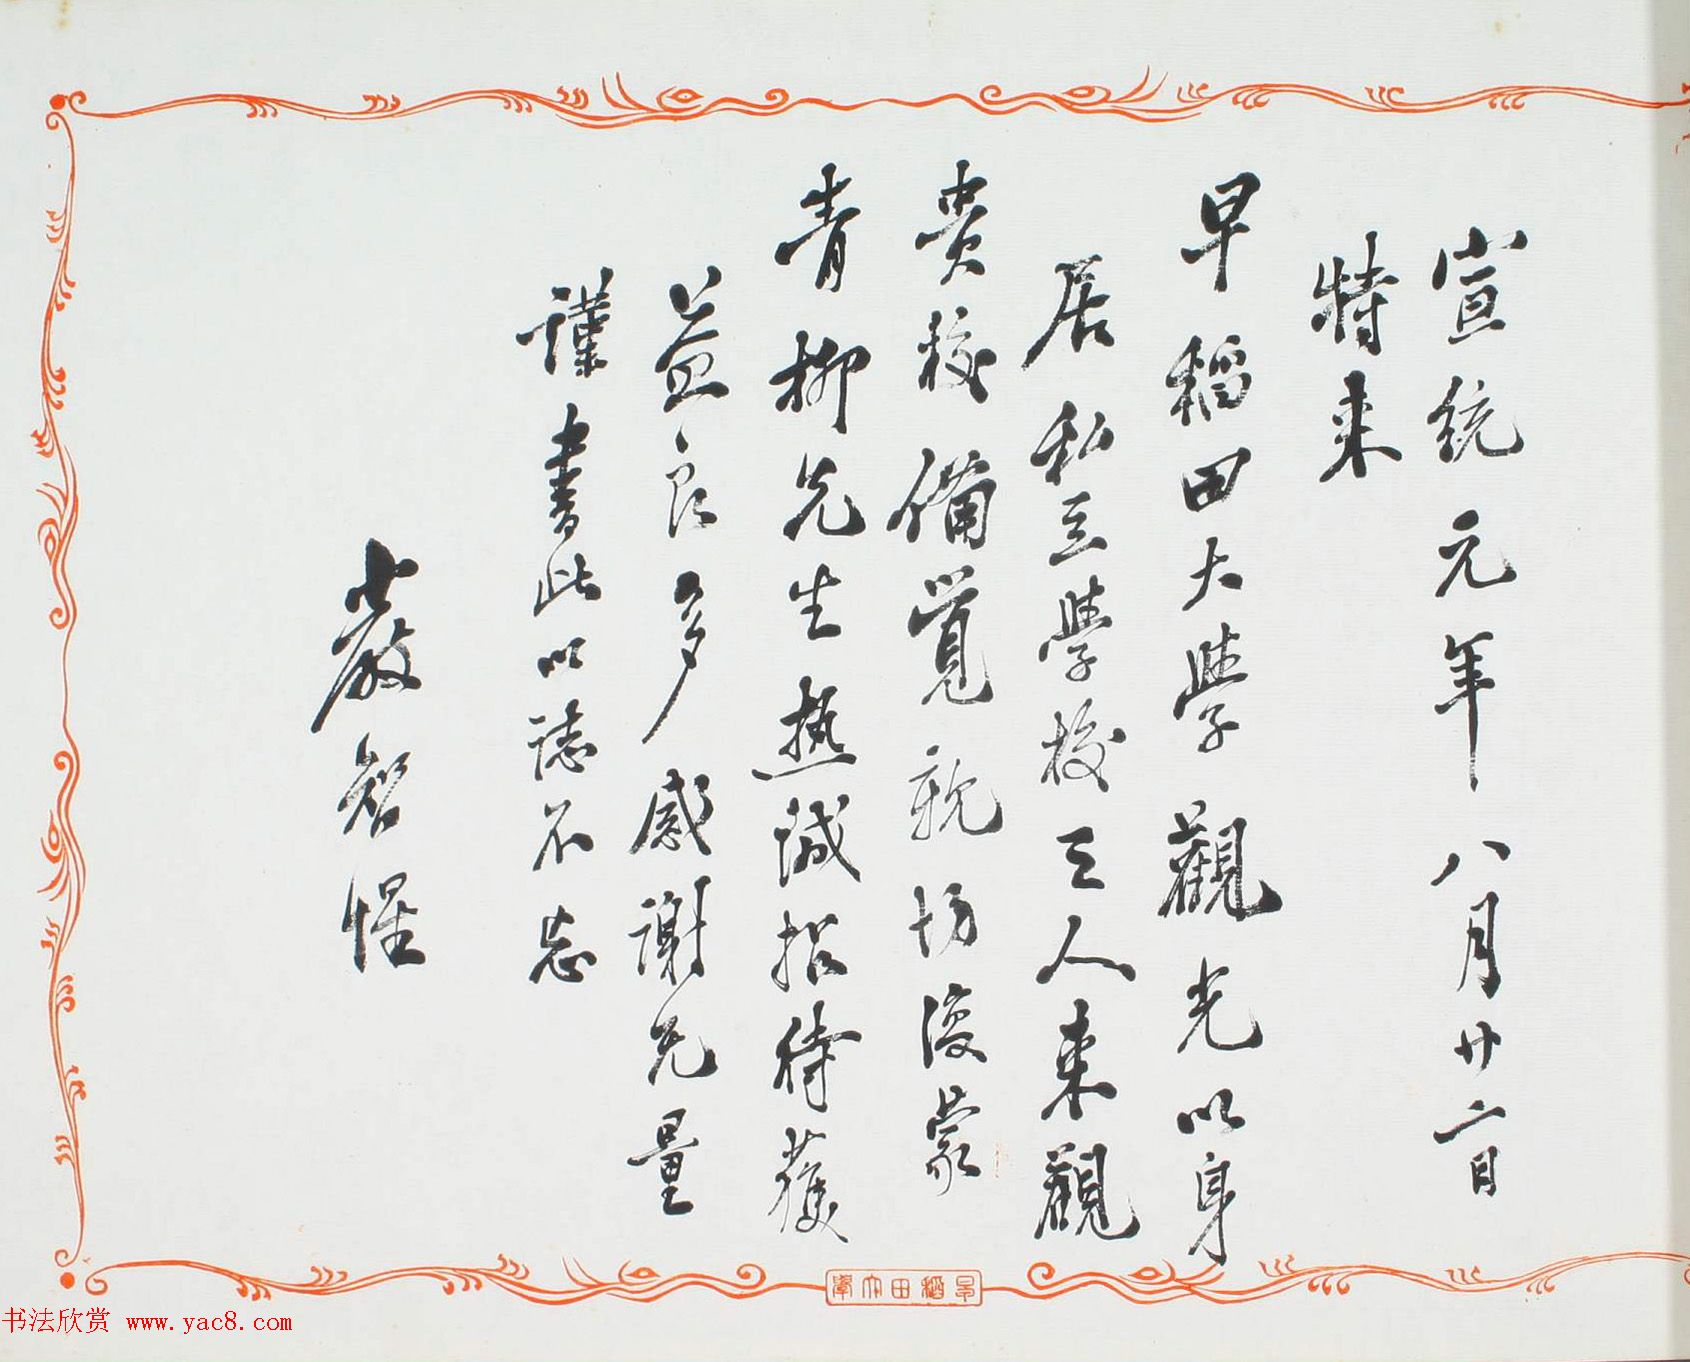 宣統元年八月廿二日
特来
早稻田大學觀光以身
居私立學校之人来觀
貴校備覺親切復蒙
青柳先生热誠招待獲
益良多感谢无量
謹書此以誌不忘
嚴智惺
早稻田大學
书法欣赏 www.yac8.com